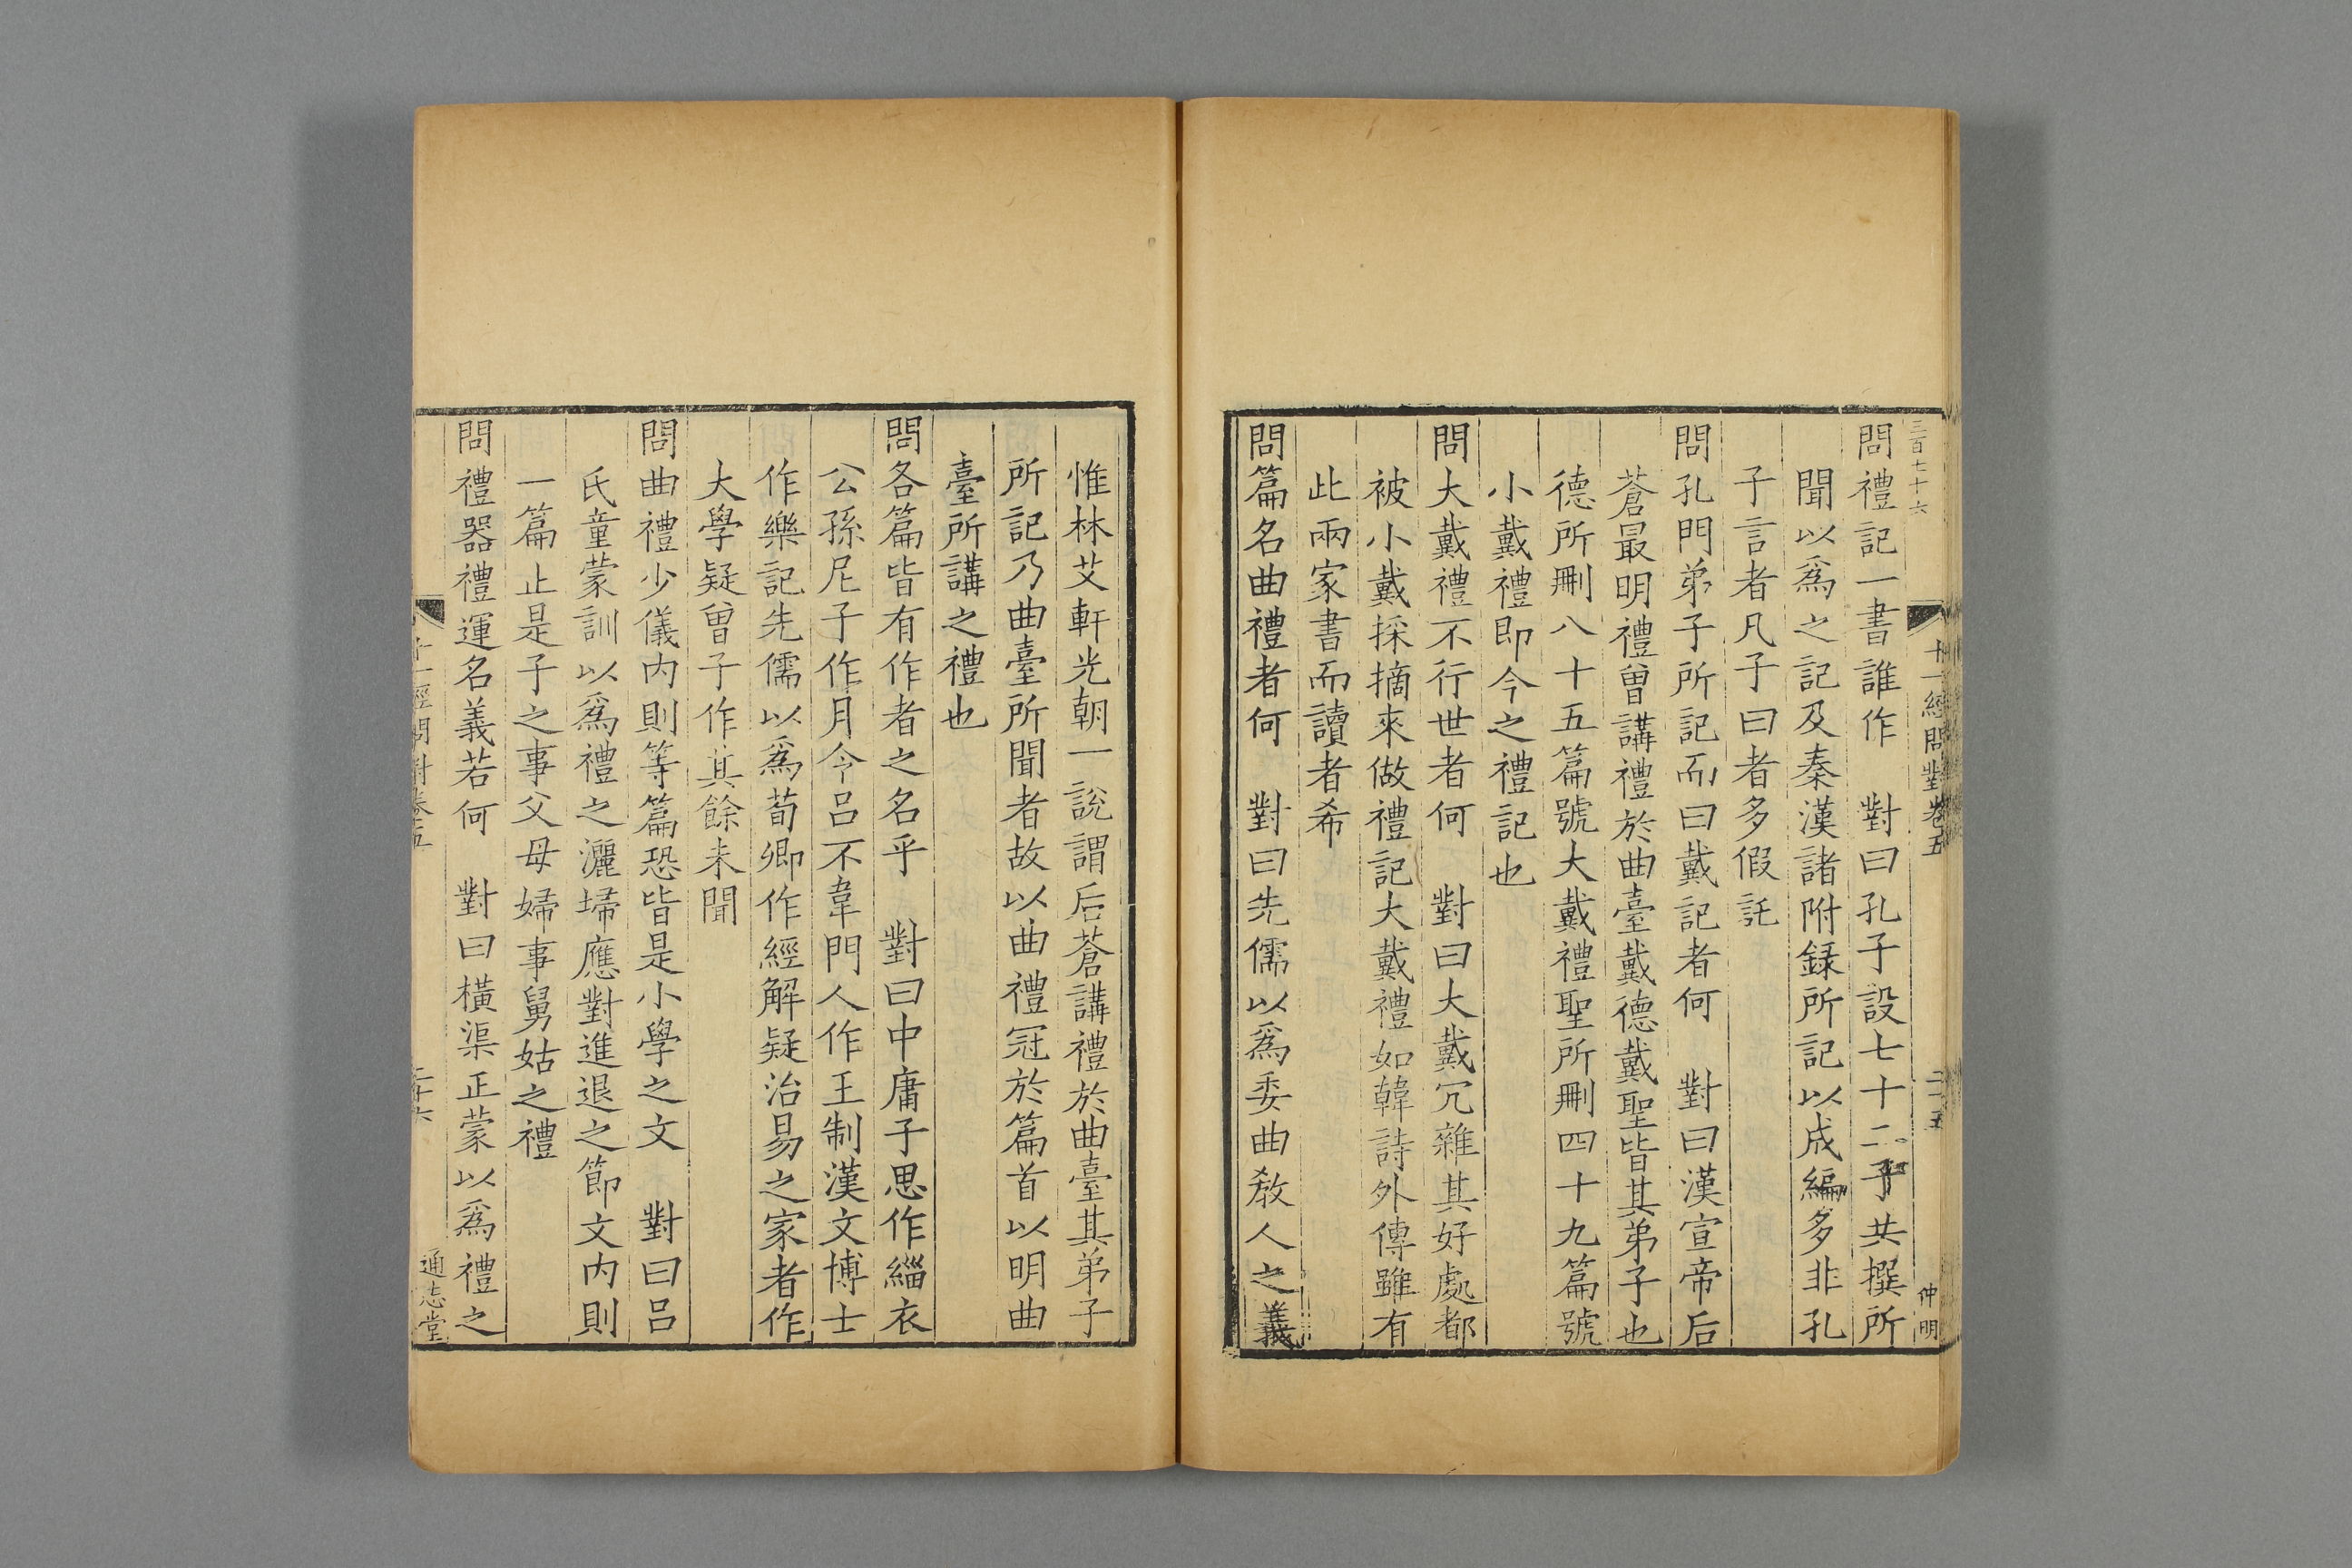 三百七十六
十一經問對卷五
二十五
仲明
問禮記一書誰作　對曰孔子設七十二子共撰所
聞以爲之記及秦漢諸附録所記以成編多非孔
子言者凡子曰者多假託
問孔門弟子所記而曰戴記者何　對曰漢宣帝后
蒼最明禮曾講禮於曲臺戴德戴聖皆其弟子也
德所刪八十五篇號大戴禮聖所刪四十九篇號
小戴禮即今之禮記也
問大戴禮不行世者何　對曰大戴冗雜其好處都
被小戴採摘來做禮記大戴禮如韓詩外傳雖有
此兩家書而讀者希
問篇名曲禮者何　對曰先儒以爲委曲教人之義
惟林艾軒光朝一説謂后蒼講禮於曲臺其弟子
所記乃曲臺所聞者故以曲禮冠於篇首以明曲
臺所講之禮也
問各篇皆有作者之名乎　對曰中庸子思作緇衣
公孫尼子作月令吕不韋門人作王制漢文博士
作樂記先儒以爲荀卿作經解疑治易之家者作
大學疑曾子作其餘未聞
問曲禮少儀内則等篇恐皆是小學之文　對曰吕
氏童蒙訓以爲禮之灑埽應對進退之節文内則
一篇止是子之事父母婦事舅姑之禮
問禮器禮運名義若何　對曰橫渠正蒙以爲禮之
十一經問對卷五
二十六
通志堂